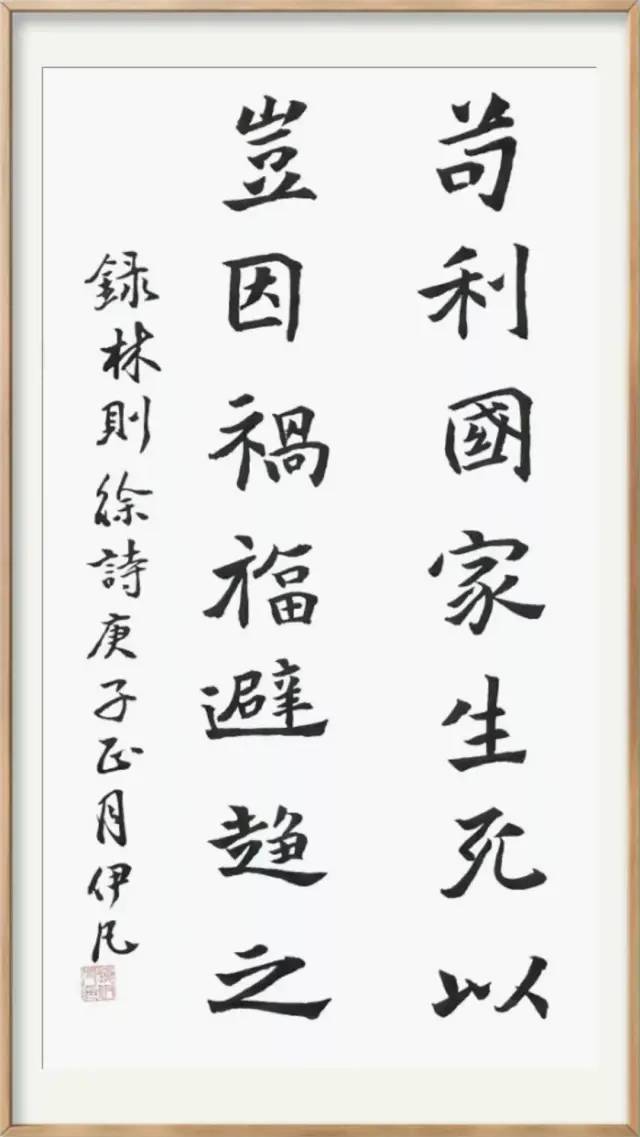 苟利國家生死以
豈因禍福避趨之
録林則徐詩庚子正月伊凡